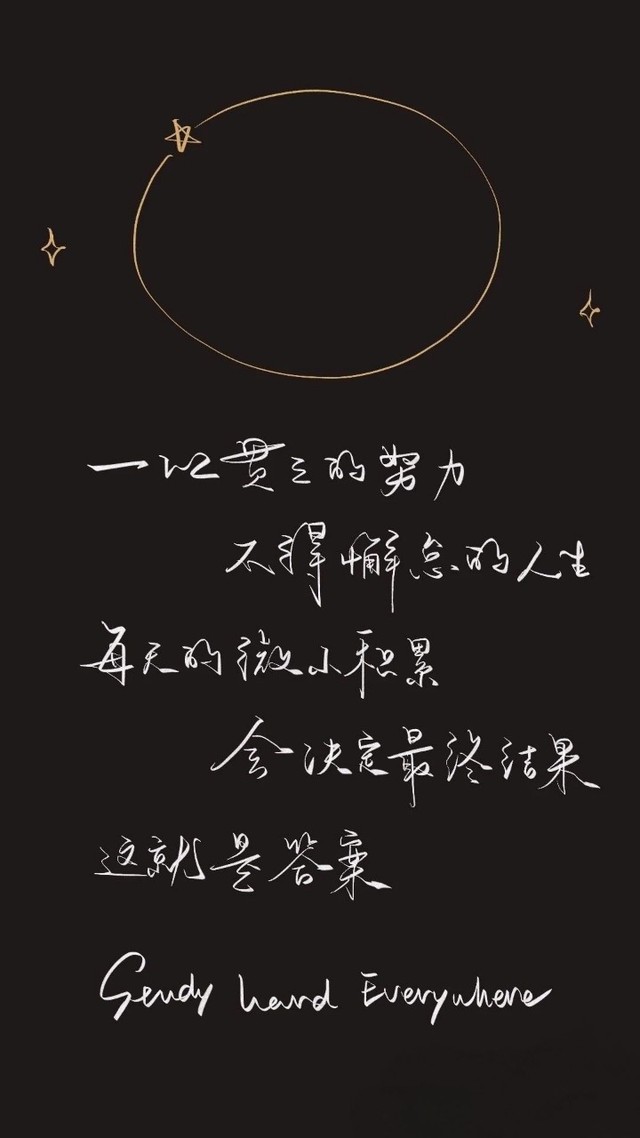 一以贯之的努力
不得懈怠的人生
每天的微小积累
会决定最终结果
这就是答案
Sendy hard Everywhere